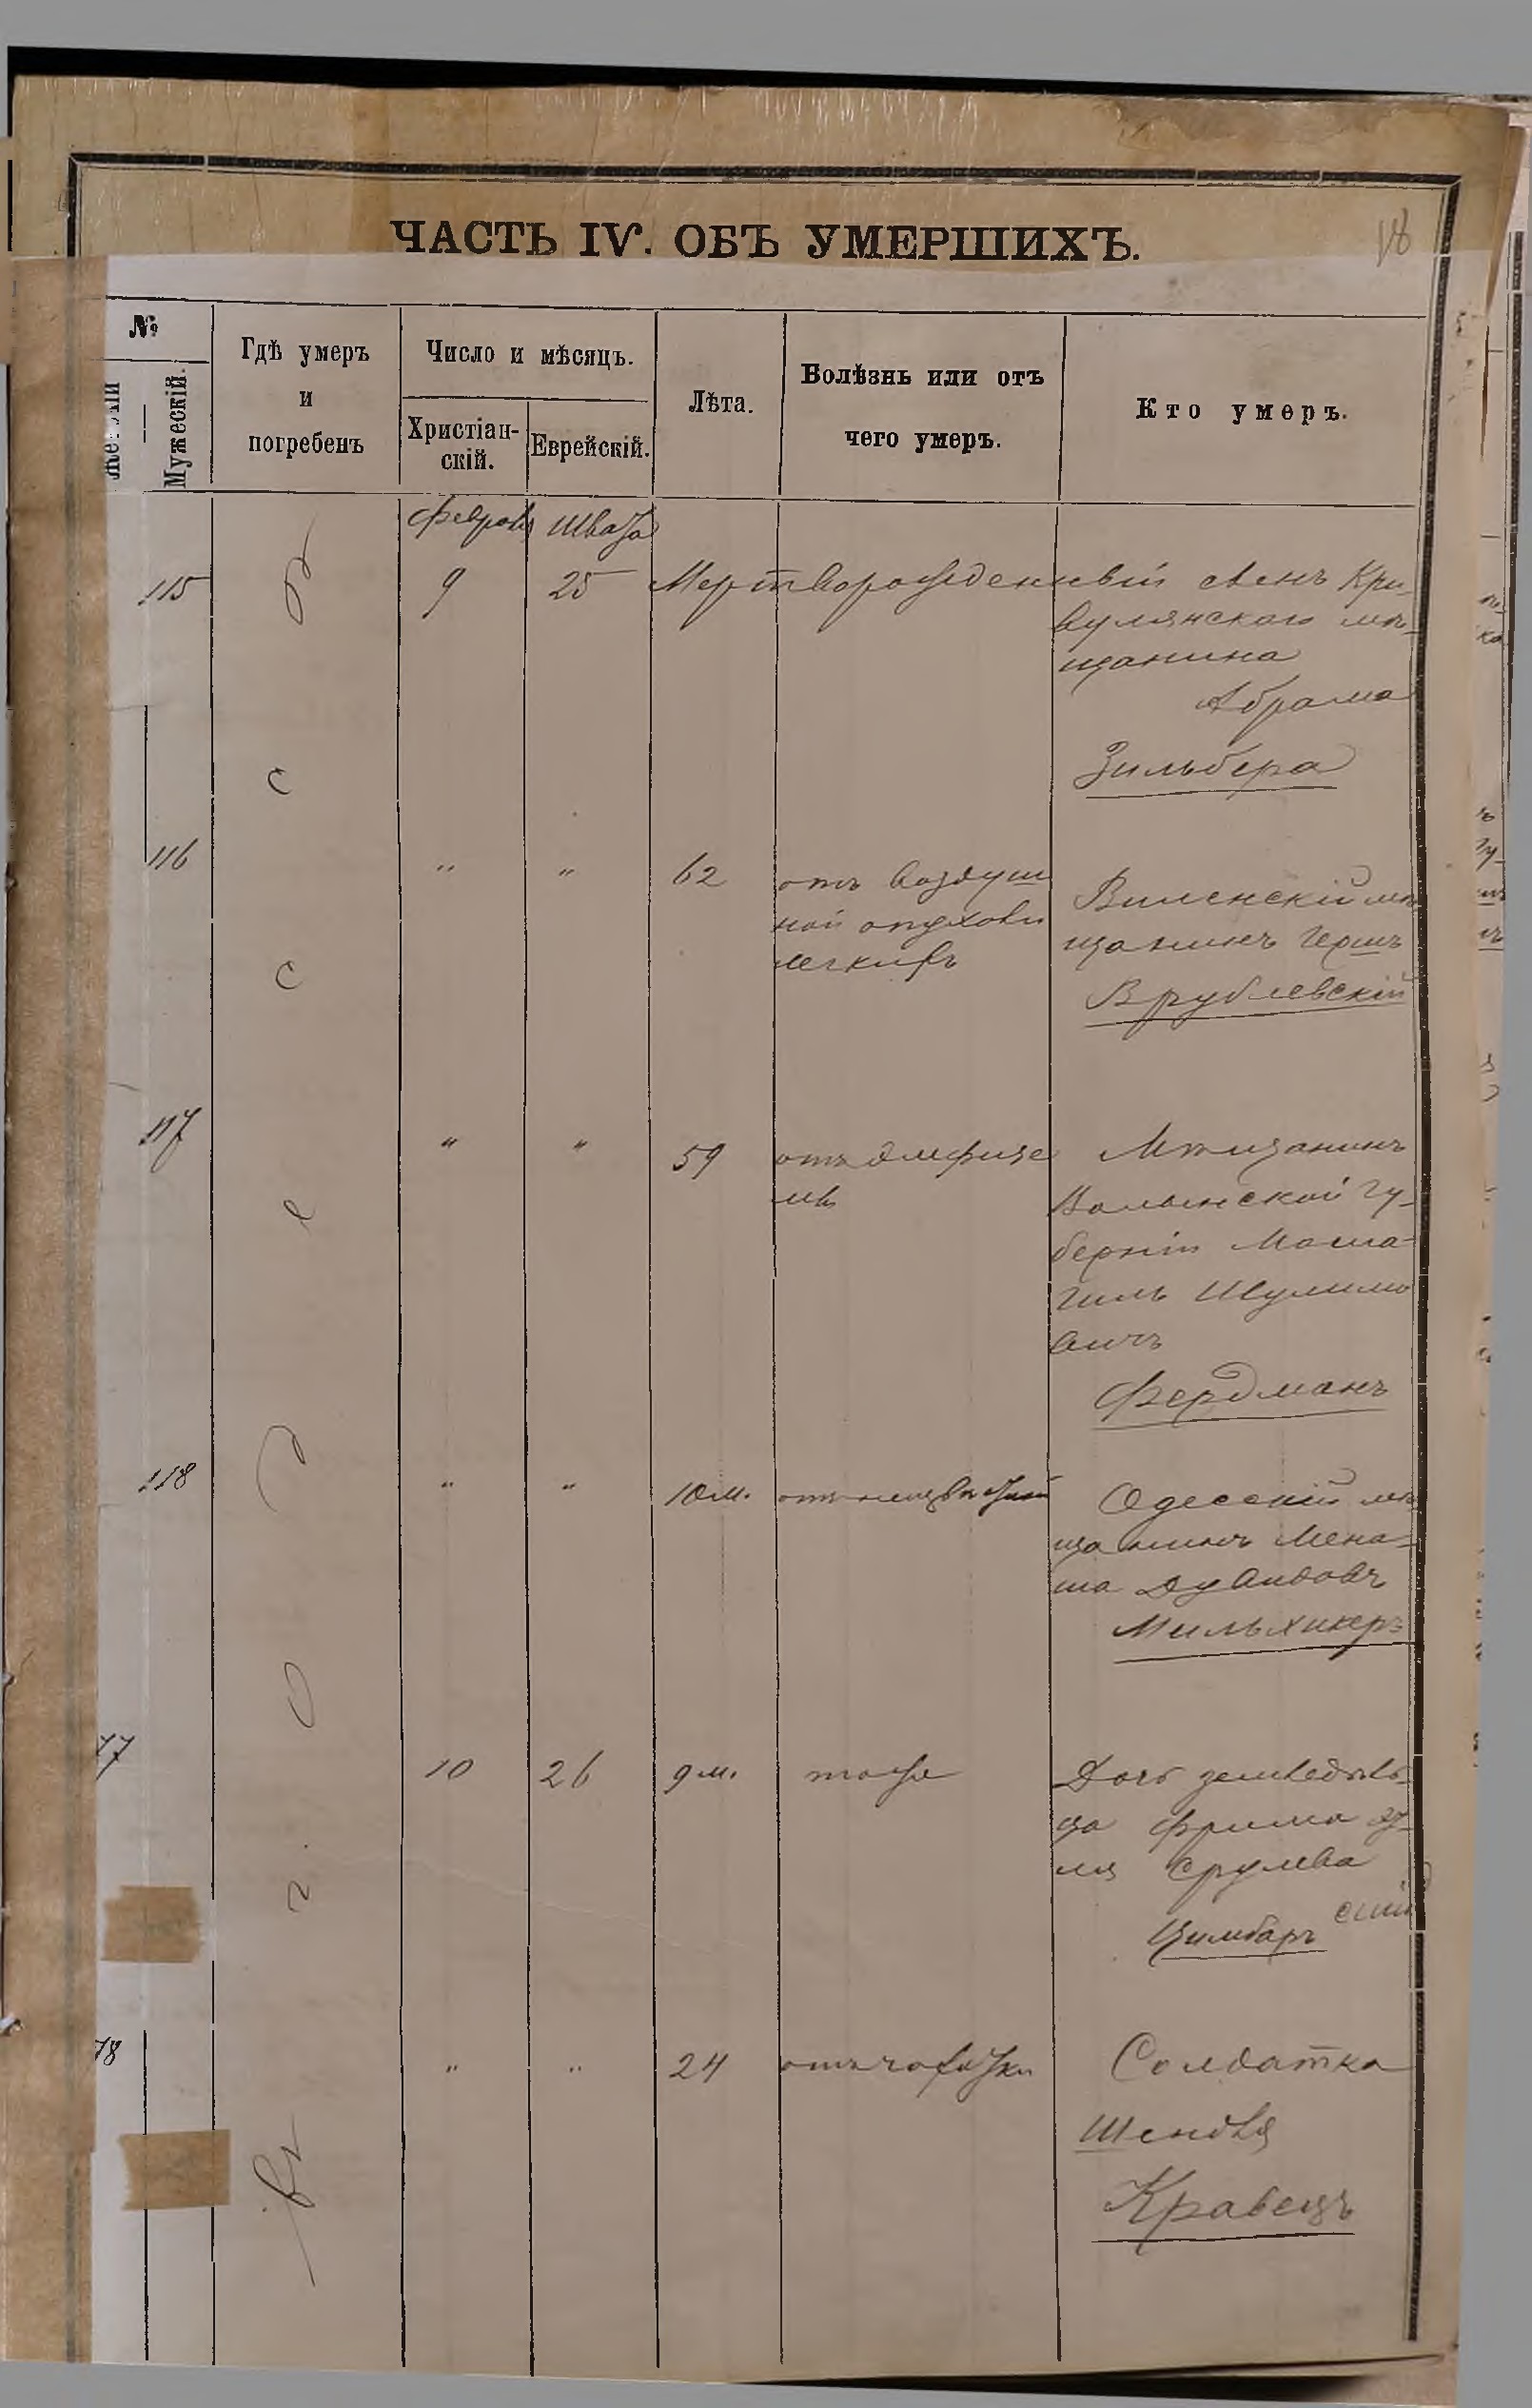 ЧАСТЬ IV. ОБЪ УМЕРШИХЪ.
18
№
Мужескій.
Гдѣ умеръ
и
погребенъ
Число и мѣсяцъ.
Христіан-
скій.
Еврейскій.
Лѣта.
Болѣзнь или отъ
чего умеръ.
Кто умеръ.
въ г. Одессѣ
Февраля Швата
115 9 25 Мертворожденный сынъ Кри-
вулянскаго мѣ-
щанина
Абрама
Зильбера
116 " " 62 отъ воздуш
ной опухоли
легкихъ
Виленскій мѣ
щанинъ Герш
Врублевскій
117 " " 59 отъ эмфизе
мы
Мѣщанинъ
Волынской гу-
берніи Мошко-
Гиль Шулимо
вичъ
Фердманъ
118 " " 10 м.
Одесскій мѣ
щанинъ Мена-
ша Дувидовъ
Мильхикеръ
77 10 26 9 м. тоже
Дочь земледѣль-
ца Фрима
Срулева
Цимбаръ
78 " " 24 отъ чахотки
Солдатка
Шендля
Кравецъ